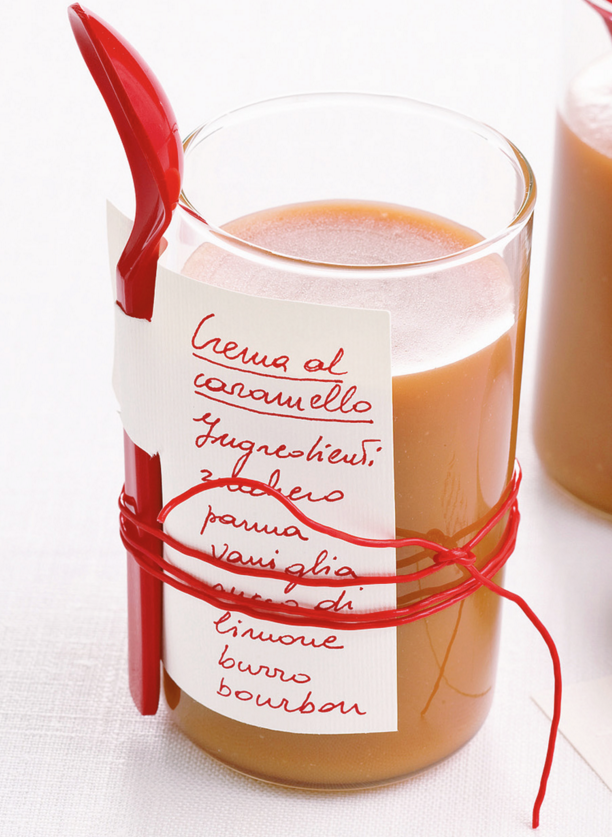 Crema al
caramello
Ingredienti:
zucchero
panna
vaniglia
succo di
limone
burro
bourbon